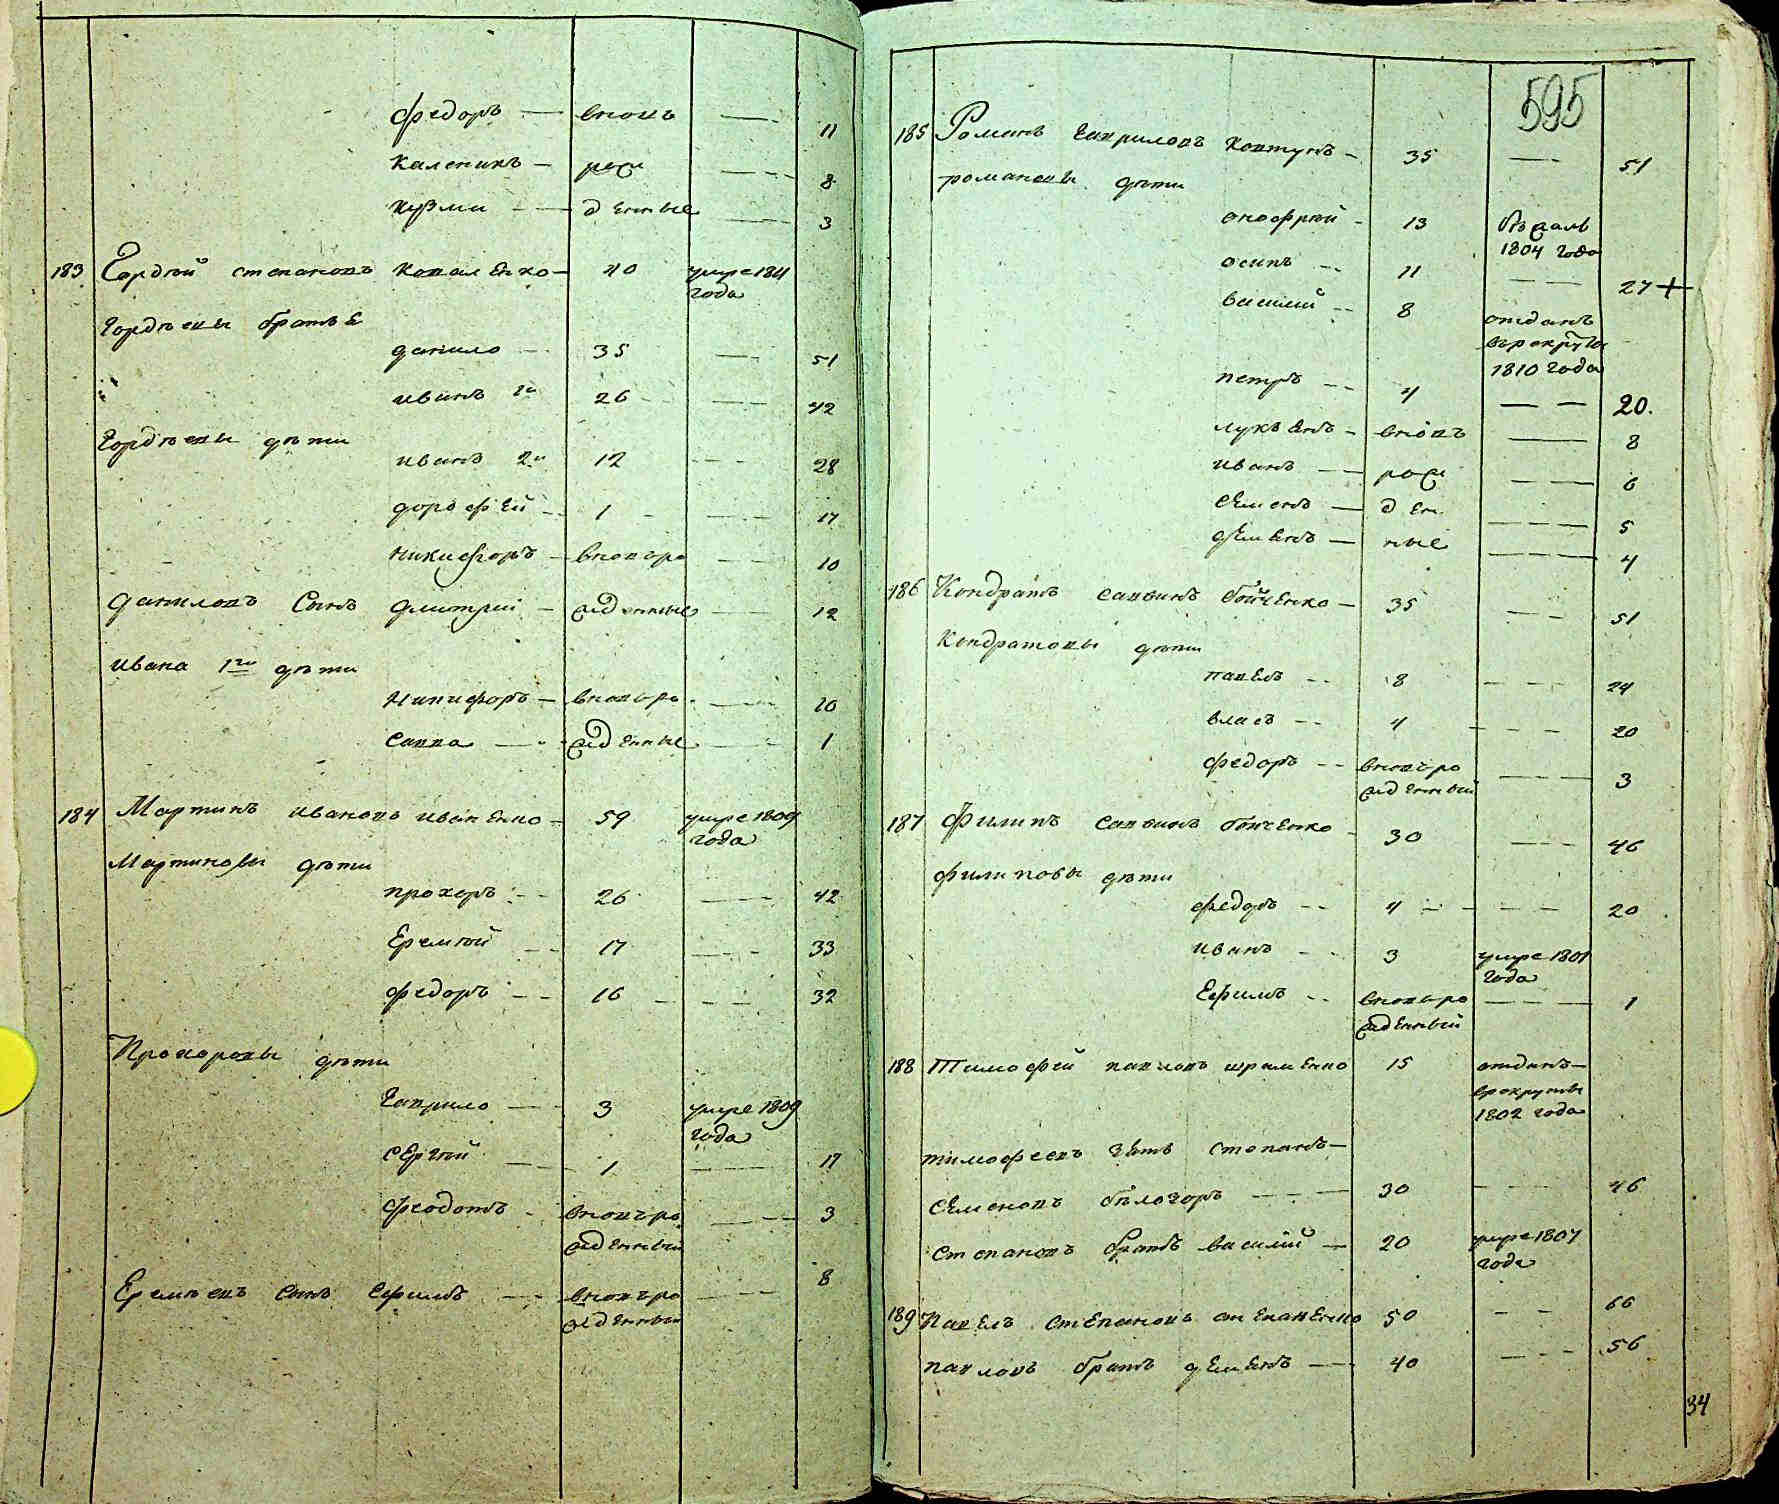 федоръ — вновь — 11
каленикъ — рож — 8
кузма — денные — 3
183 Гордѣй степановъ коваленко — 40 умре 1811
года
Гордѣевы братья
данило — 35 — 51
иванъ 1й 26 — 42
Гордѣевы дѣти
иванъ 2й 12 — 28
дорофей — 1 — 17
никифоръ — вновьро — 10
даниловъ сынъ дмитрій — жденные — 12
ивана 1го дѣти
никифоръ — вновьро — 10
савва — жденные — 1
184 Мартинъ ивановъ иваненко — 59 умре 1809
года
Мартиновы дѣти
прохоръ — 26 — 42
Еремѣй — 17 — 33
федоръ — 16 — 32
Прохоровы дѣти
гаврило — 3 умре 1809
года
сергѣй — 1 — 17
феодотъ — вновьро — 3
жденный
8
Еремѣевъ сынъ Ефимъ — вновьро —
жденный
595
185 Романъ гавриловъ ковтунъ — 35 — 51
романовы дѣти
онофрій — 13 бѣжалъ
1804 года
осипъ — 11 — 27 +
василий — 8 отданъ
врекруты
1810 года
петръ — 4 — 20.
лукьянъ — вновь — 8
иванъ — рож — 6
семенъ — ден — 5
демянъ — ные — 4
186 Кондратъ саввинъ бойченко — 35 — 51
Кондратовы дѣти
павелъ — 8 — 24
власъ — 4 — 20
федоръ — вновьро — 3
жденный
187 Филипъ саввинъ бойченко — 30 — 46
филиповы дѣти
федоръ — 4 — 20
иванъ — 3 умре 1801
года
Ефимъ — вновьро — 1
жденный
188 Тимофей павловъ 15 отданъ —
врекруты
1802 года
тимофеевъ зять степанъ —
семеновъ бѣлозоръ — 30 — 46
степановъ братъ василій — 20 умре 1807
года
189 Павелъ степановъ 50 — 66
павловъ братъ демянъ — 40 — 56
34